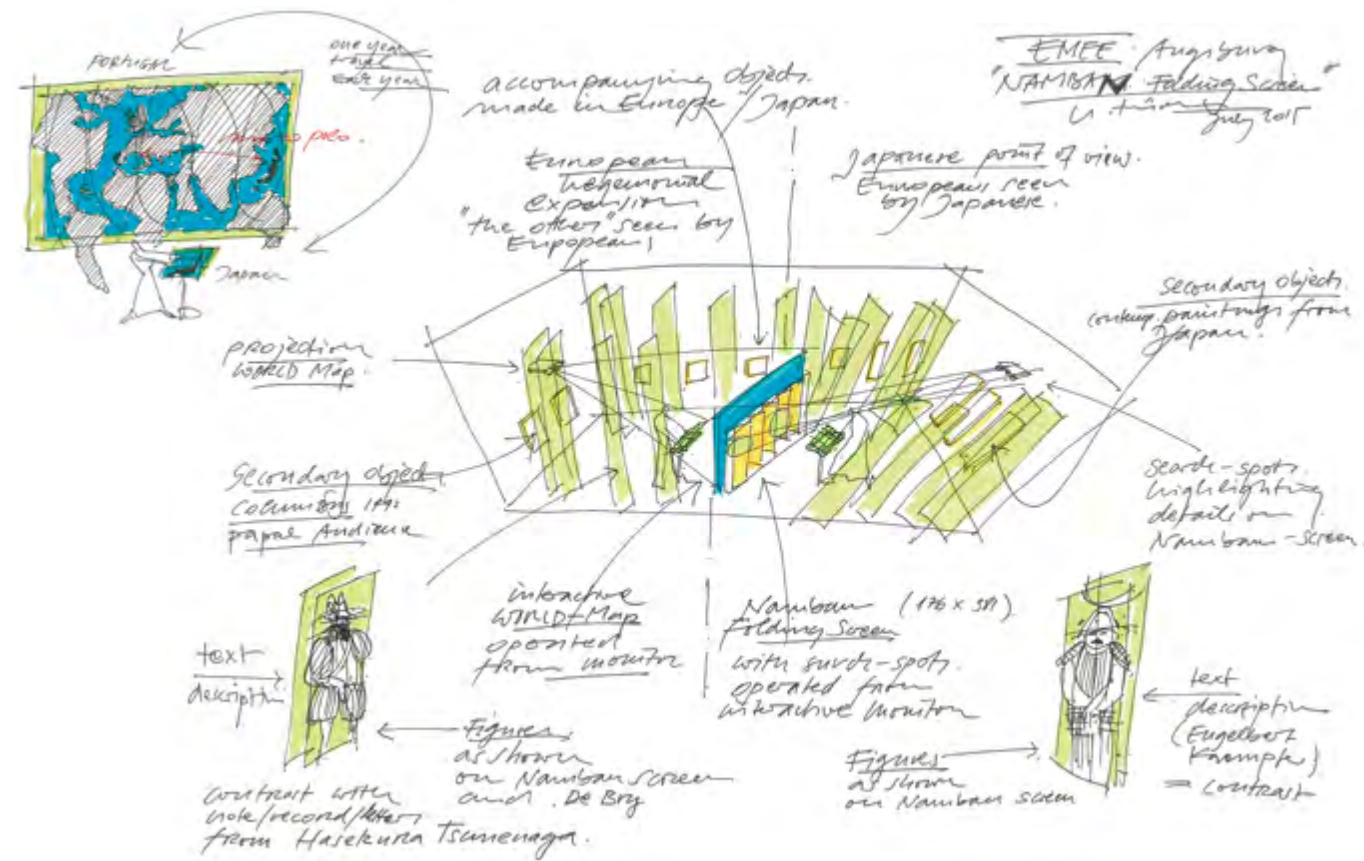 PORTUGAL
one year
travel
each year
Marco polo.
Japan
EMEE Augsburg
"NAMBAN Folding Screen"
July 2015
accompanying objects
made in Europe / Japan.
European
hegemonial
expansion
"the other" seen by
Europeans
Japanese point of view.
Europeans seen
by Japanese.
secondary objects
contemp. paintings from
Japan.
projection
WORLD Map.
Secondary objects
papal Audience
search-spots
highlighting
details on
Namban-screen.
interactive
WORLD-Map
operated
from monitor
Namban
Folding Screen
with search-spots
operated from
interactive monitor
text
description
Figures
as shown
on Namban screen
and De Bry
contrast with
note/record/letters
from Hasekura Tsunenaga.
Figures
as shown
on Namban screen
text
description
(Engelbert
Kaempfer)
= contrast